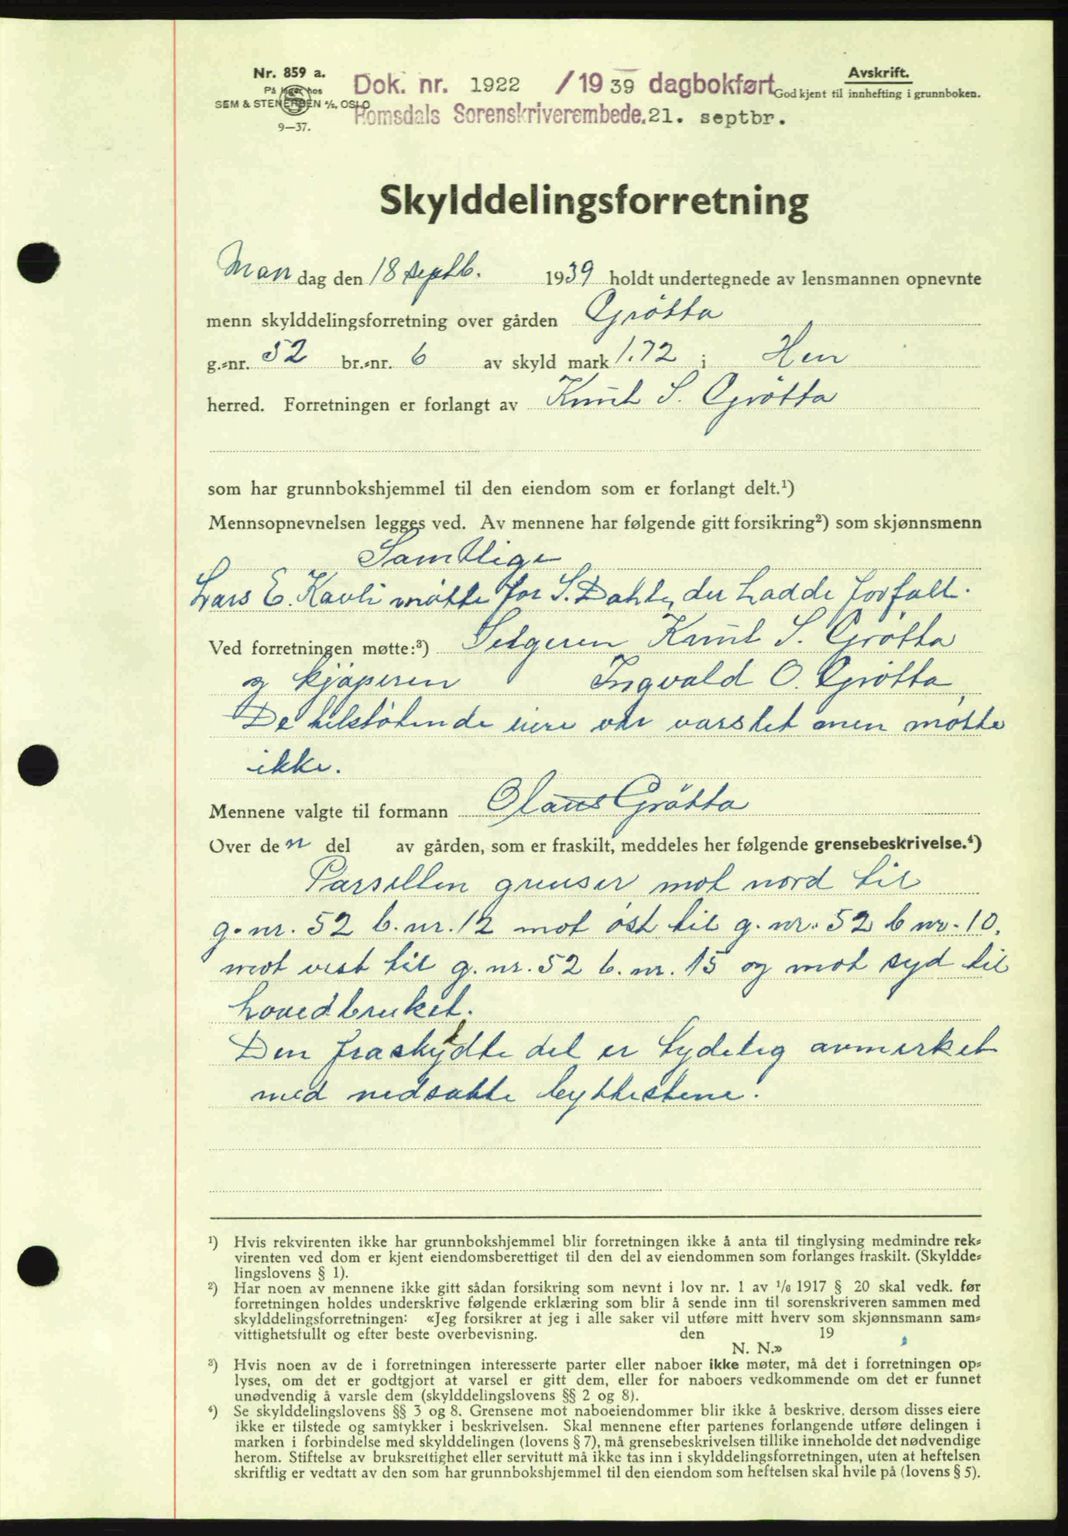 Nr. 859 a.
På lager hos
SEM & STENERSEN A/S, OSLO
9—37.
Dok. nr. 1922 /1939 dagbokført
Romsdals Sorenskriverembede. 21. septbr.
Avskrift.
Godkjent til innhefting i grunnboken.
Skylddelingsforretning
Man dag den 18 septb. 1939 holdt undertegnede av lensmannen opnevnte
menn skylddelingsforretning over gården Grøtta
g.-nr. 52 br.-nr. 6 av skyld mark 1.72 i Hen
herred. Forretningen er forlangt av Knut S. Grøtta
som har grunnbokshjemmel til den eiendom som er forlangt delt.¹)
Mennsopnevnelsen legges ved. Av mennene har følgende gitt forsikring²) som skjønnsmenn
Samtlige
Lars E. Kavli møtte for S. Dahle, der hadde forfall.
Ved forretningen møtte:³) Selgeren Knut S. Grøtta
og kjøperen Ingvald O. Grøtta,
De tilstøtende eiere var varslet men møtte
ikke.
Mennene valgte til formann Olaus Grøtta
Over den del av gården, som er fraskilt, meddeles her følgende grensebeskrivelse.⁴)
Parsellen grenser mot nord til
g.nr. 52 b.nr. 12 mot øst til g.nr. 52 b nr. 10,
mot vest til g.nr. 52 b.nr. 15 og mot syd til
hovedbruket.
Den fraskyldte del er tydelig avmerket
med nedsatte byttestene.
¹) Hvis rekvirenten ikke har grunnbokshjemmel blir forretningen ikke å anta til tinglysing medmindre rek-
virenten ved dom er kjent eiendomsberettiget til den del av eiendommen som forlanges fraskilt. (Skyldde-
lingslovens § 1).
²) Har noen av mennene ikke gitt sådan forsikring som nevnt i lov nr. 1 av 1/6 1917 § 20 skal vedk. før
forretningen holdes underskrive følgende erklæring som blir å sende inn til sorenskriveren sammen med
skylddelingsforretningen: «Jeg forsikrer at jeg i alle saker vil utføre mitt hverv som skjønnsmann sam-
vittighetsfullt og efter beste overbevisning. den 19
N. N.»
³) Hvis noen av de i forretningen interesserte parter eller naboer ikke møter, må det i forretningen op-
lyses, om det er godtgjort at varsel er gitt dem, eller for naboers vedkommende om det er funnet
unødvendig å varsle dem (skylddelingslovens §§ 2 og 8).
⁴) Se skylddelingslovens §§ 3 og 8. Grensene mot naboeiendommer blir ikke å beskrive, dersom disses eiere
ikke er tilstede og samtykker i beskrivelsen. Skal mennene efter partenes forlangende utføre delingen i
marken i forbindelse med skylddelingen (lovens § 7), må grensebeskrivelsen tillike inneholde det nødvendige
herom. Stiftelse av bruksrettighet eller servitutt må ikke tas inn i skylddelingsforretningen, uten at heftelsen
skriftlig er vedtatt av den som har grunnbokshjemmel til den eiendom som heftelsen skal hvile på (lovens § 5).